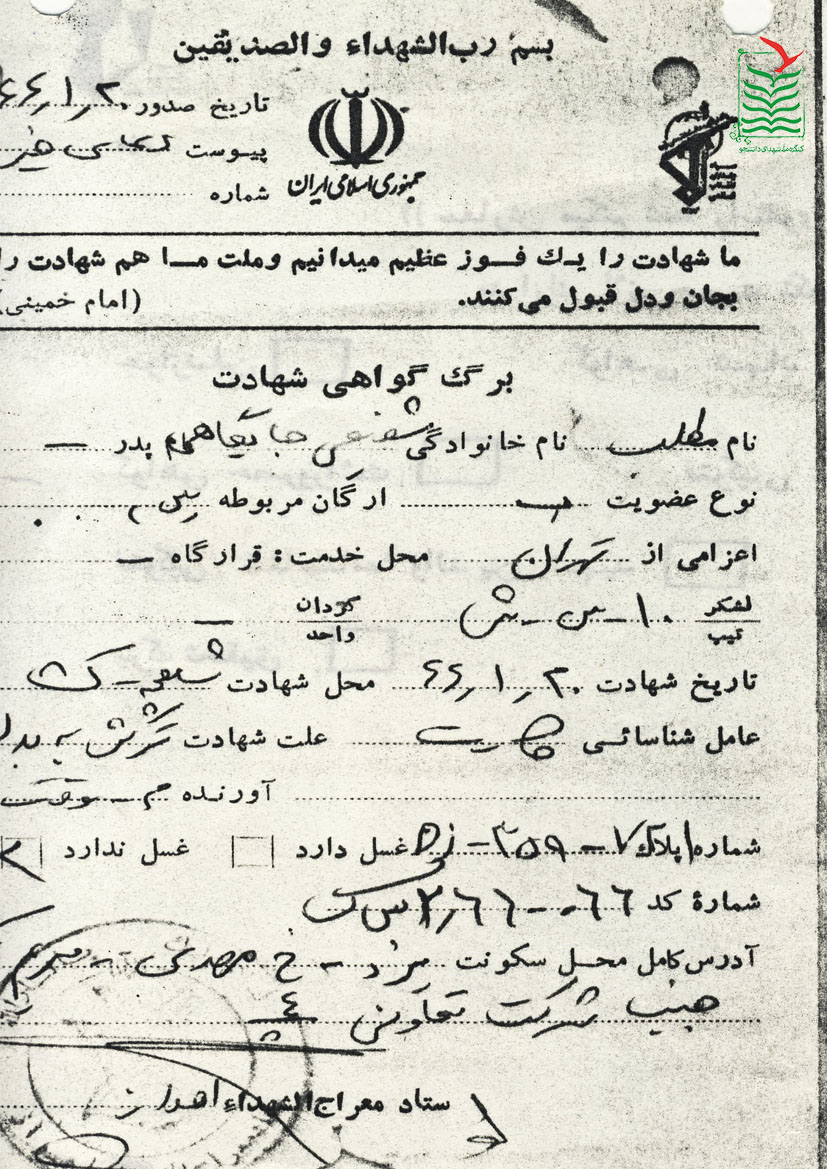 بسم رب الشهداء والصدیقین
تاریخ صدور ۶۶٫۱٫۲۰
پیوست
شماره
جمهوری اسلامی ایران
کنگره ملی شهدای دانشجو
ما شهادت را یک فوز عظیم میدانیم وملت ما هم شهادت را
بجان ودل قبول می‌کنند. (امام خمینی)
برگ گواهی شهادت
نام مطلب نام خانوادگی شفیعی جایگاهی نام پدر —
نوع عضویت ب ارگان مربوطه
اعزامی از تهران محل خدمت: قرارگاه —
لشکر
تیپ ۱۰ - س - ش گردان
واحد —
تاریخ شهادت ۶۶٫۱٫۲۰ محل شهادت
عامل شناسائی علت شهادت ترکش به بدن
آورنده
شماره پلاک غسل دارد غسل ندارد
شمارۀ کد
آدرس کامل محل سکونت
جنب شرکت تعاونی
ستاد معراج الشهداء اهواز